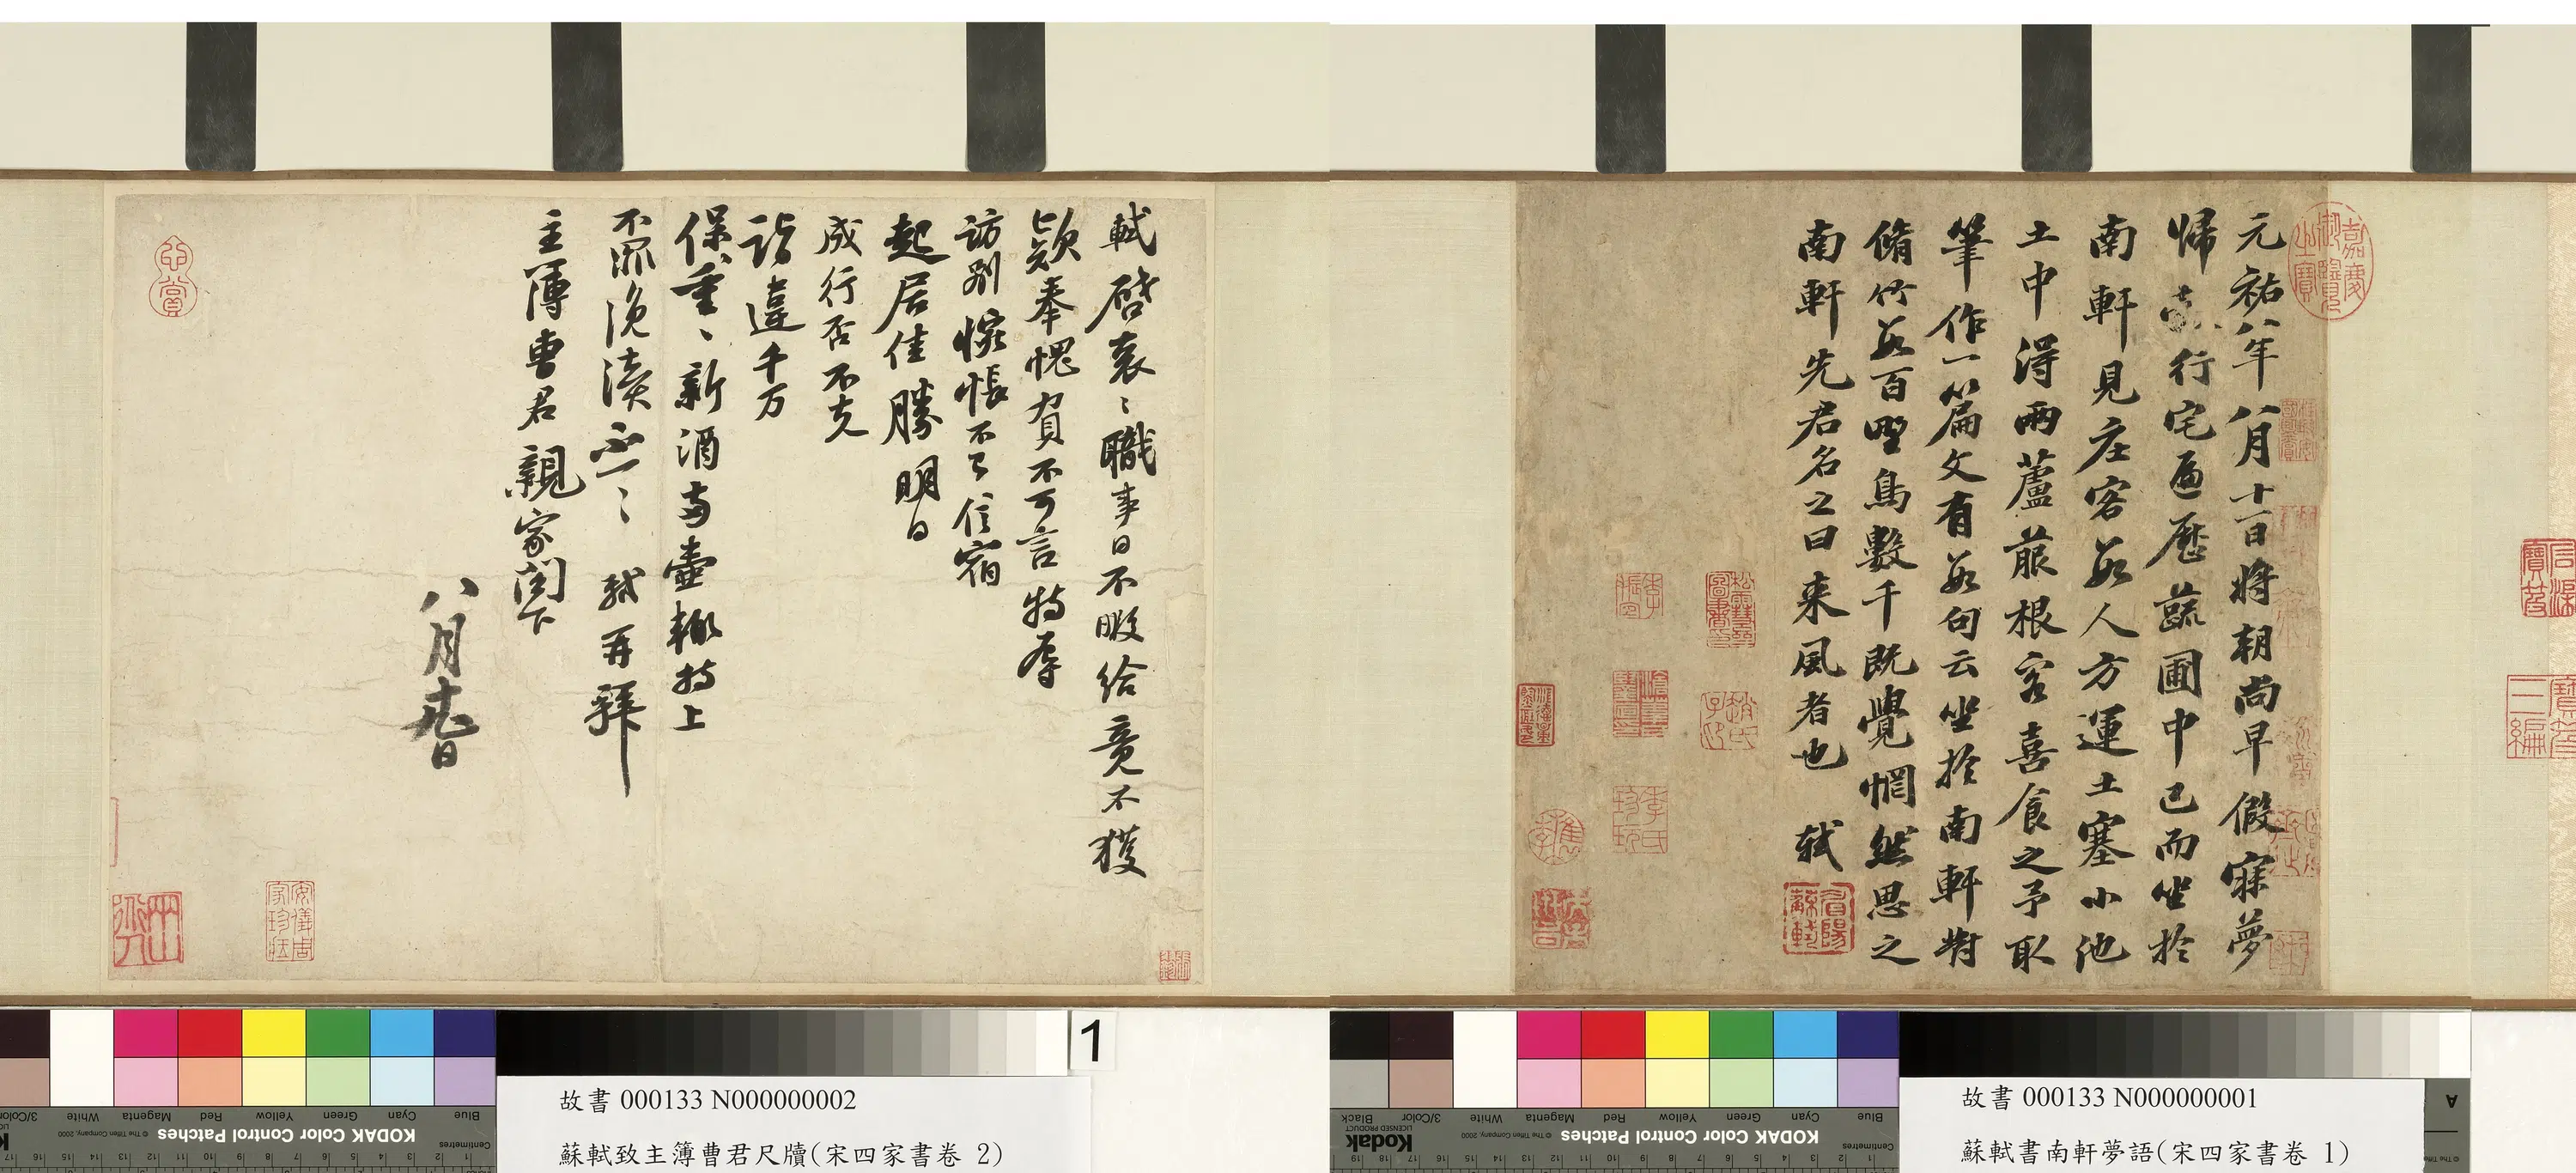 元祐八年八月十一日將朝尚早假寐夢
歸行宅遍歷蔬圃中已而坐於
南軒見庄客數人方運土塞小池
土中得兩蘆菔根客喜食之予取
筆作一篇文有數句云坐於南軒對
脩竹數百野鳥數千既覺惘然思之
南軒先君名之曰來風者也 軾
軾啓衰〻職事日不暇給竟不獲
款奉愧負不可言特辱
訪別惋悵不已信宿
起居佳勝明日
成行否不克
詣違千万
保重〻新酒兩壺輒持上
不罪浼瀆不一〻 軾再拜
主簿曹君親家閣下
八月日
嘉慶御覽之寶
眉陽蘇軾
趙氏子昂
李氏珍玩
心賞
安儀周家珍藏
寶笈三編
1
故書 000133 N000000002
蘇軾致主簿曹君尺牘(宋四家書卷 2)
故書 000133 N000000001
蘇軾書南軒夢語(宋四家書卷 1)
KODAK Color Control Patches
Blue Cyan Green Yellow Red Magenta White 3/Color
© The Tiffen Company, 2000
Centimetres
KODAK Color Control Patches
Blue Cyan Green Yellow Red Magenta White 3/Color Black
Kodak
LICENSED PRODUCT
© The Tiffen Company, 2000
Centimetres
A